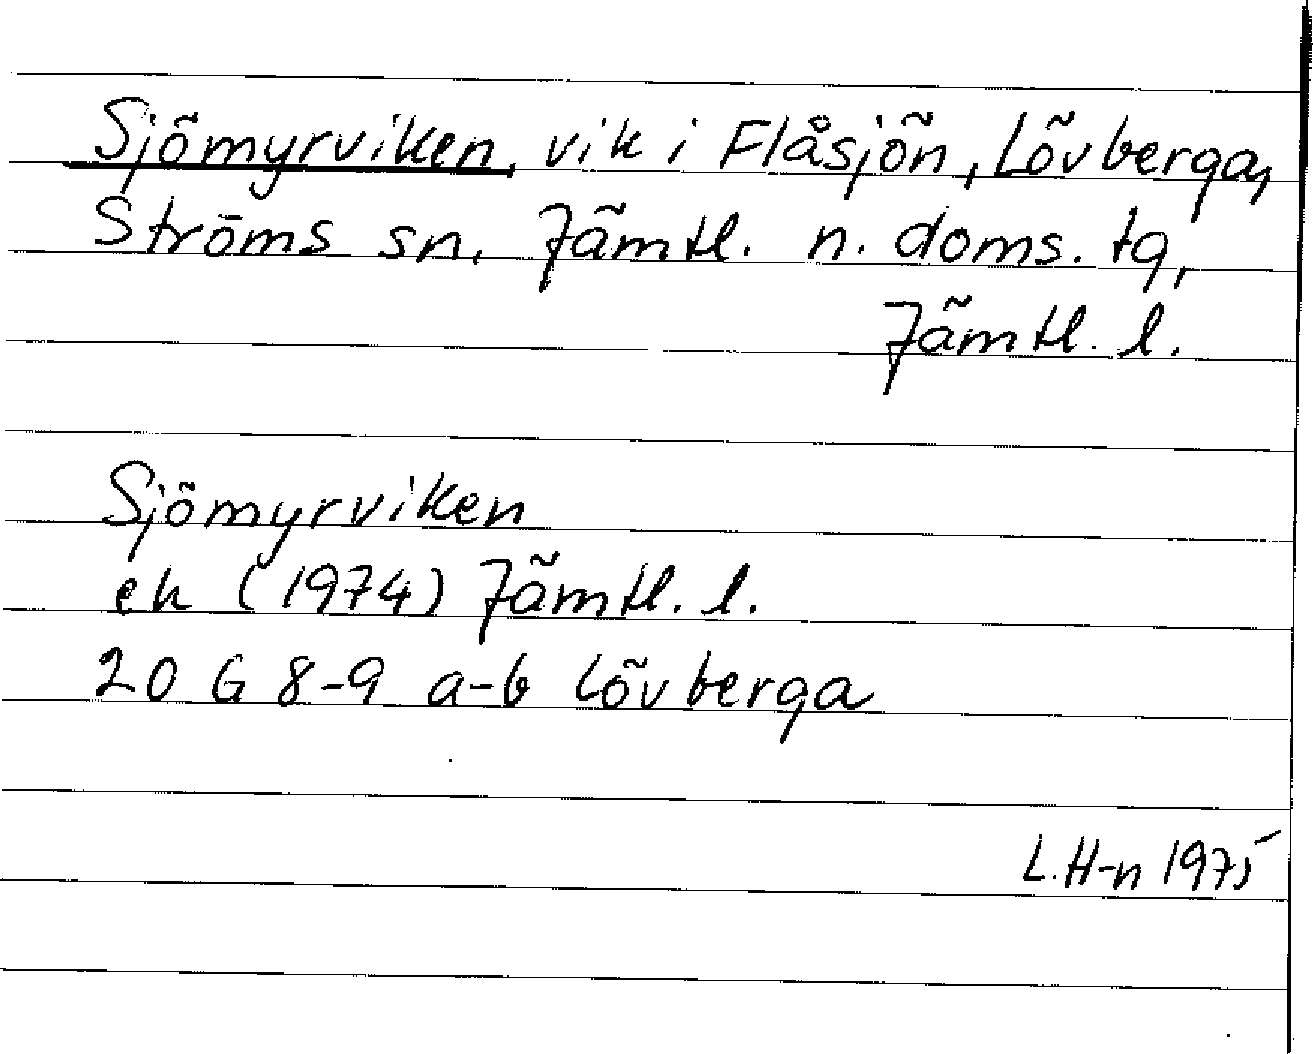 Sjömyrviken, vik i Flåsjön, Lövberga,
Ströms sn, Jämtl. n. doms. tg,
Jämtl. l.
Sjömyrviken
ek (1974) Jämtl. l.
20 G 8-9 a-b Lövberga
L. H-n 1975